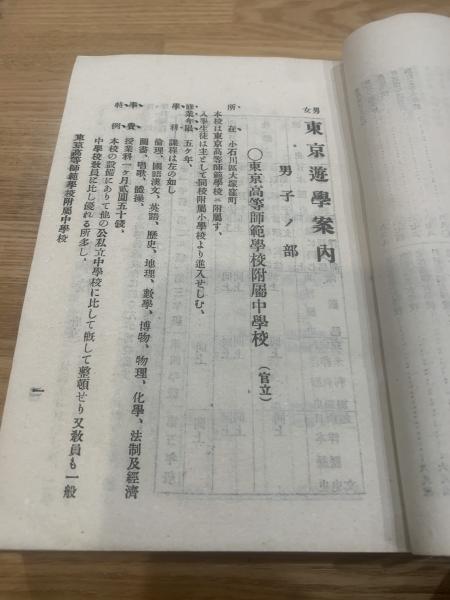 男女 東京遊學案內
男子ノ部
○東京高等師範學校附屬中學校（官立）
所在、小石川區大塚窪町
本校は東京高等師範學校ニ附屬す、
入學生徒は主として同校附屬小學校より進入せしむ、
修業年限 五ヶ年、
學科 課程は左の如し
倫理、國語漢文、英語、歷史、地理、數學、博物、物理、化學、法制及經濟
圖畫、唱歌、體操、
學費、授業料一ヶ月貳圓五十錢、
特例 本校の設備にありて他の公私立中學校に比して概して整頓せり又敎員も一般
中學校敎員に比し優れる所多し、
東京高等師範學校附屬中學校
一